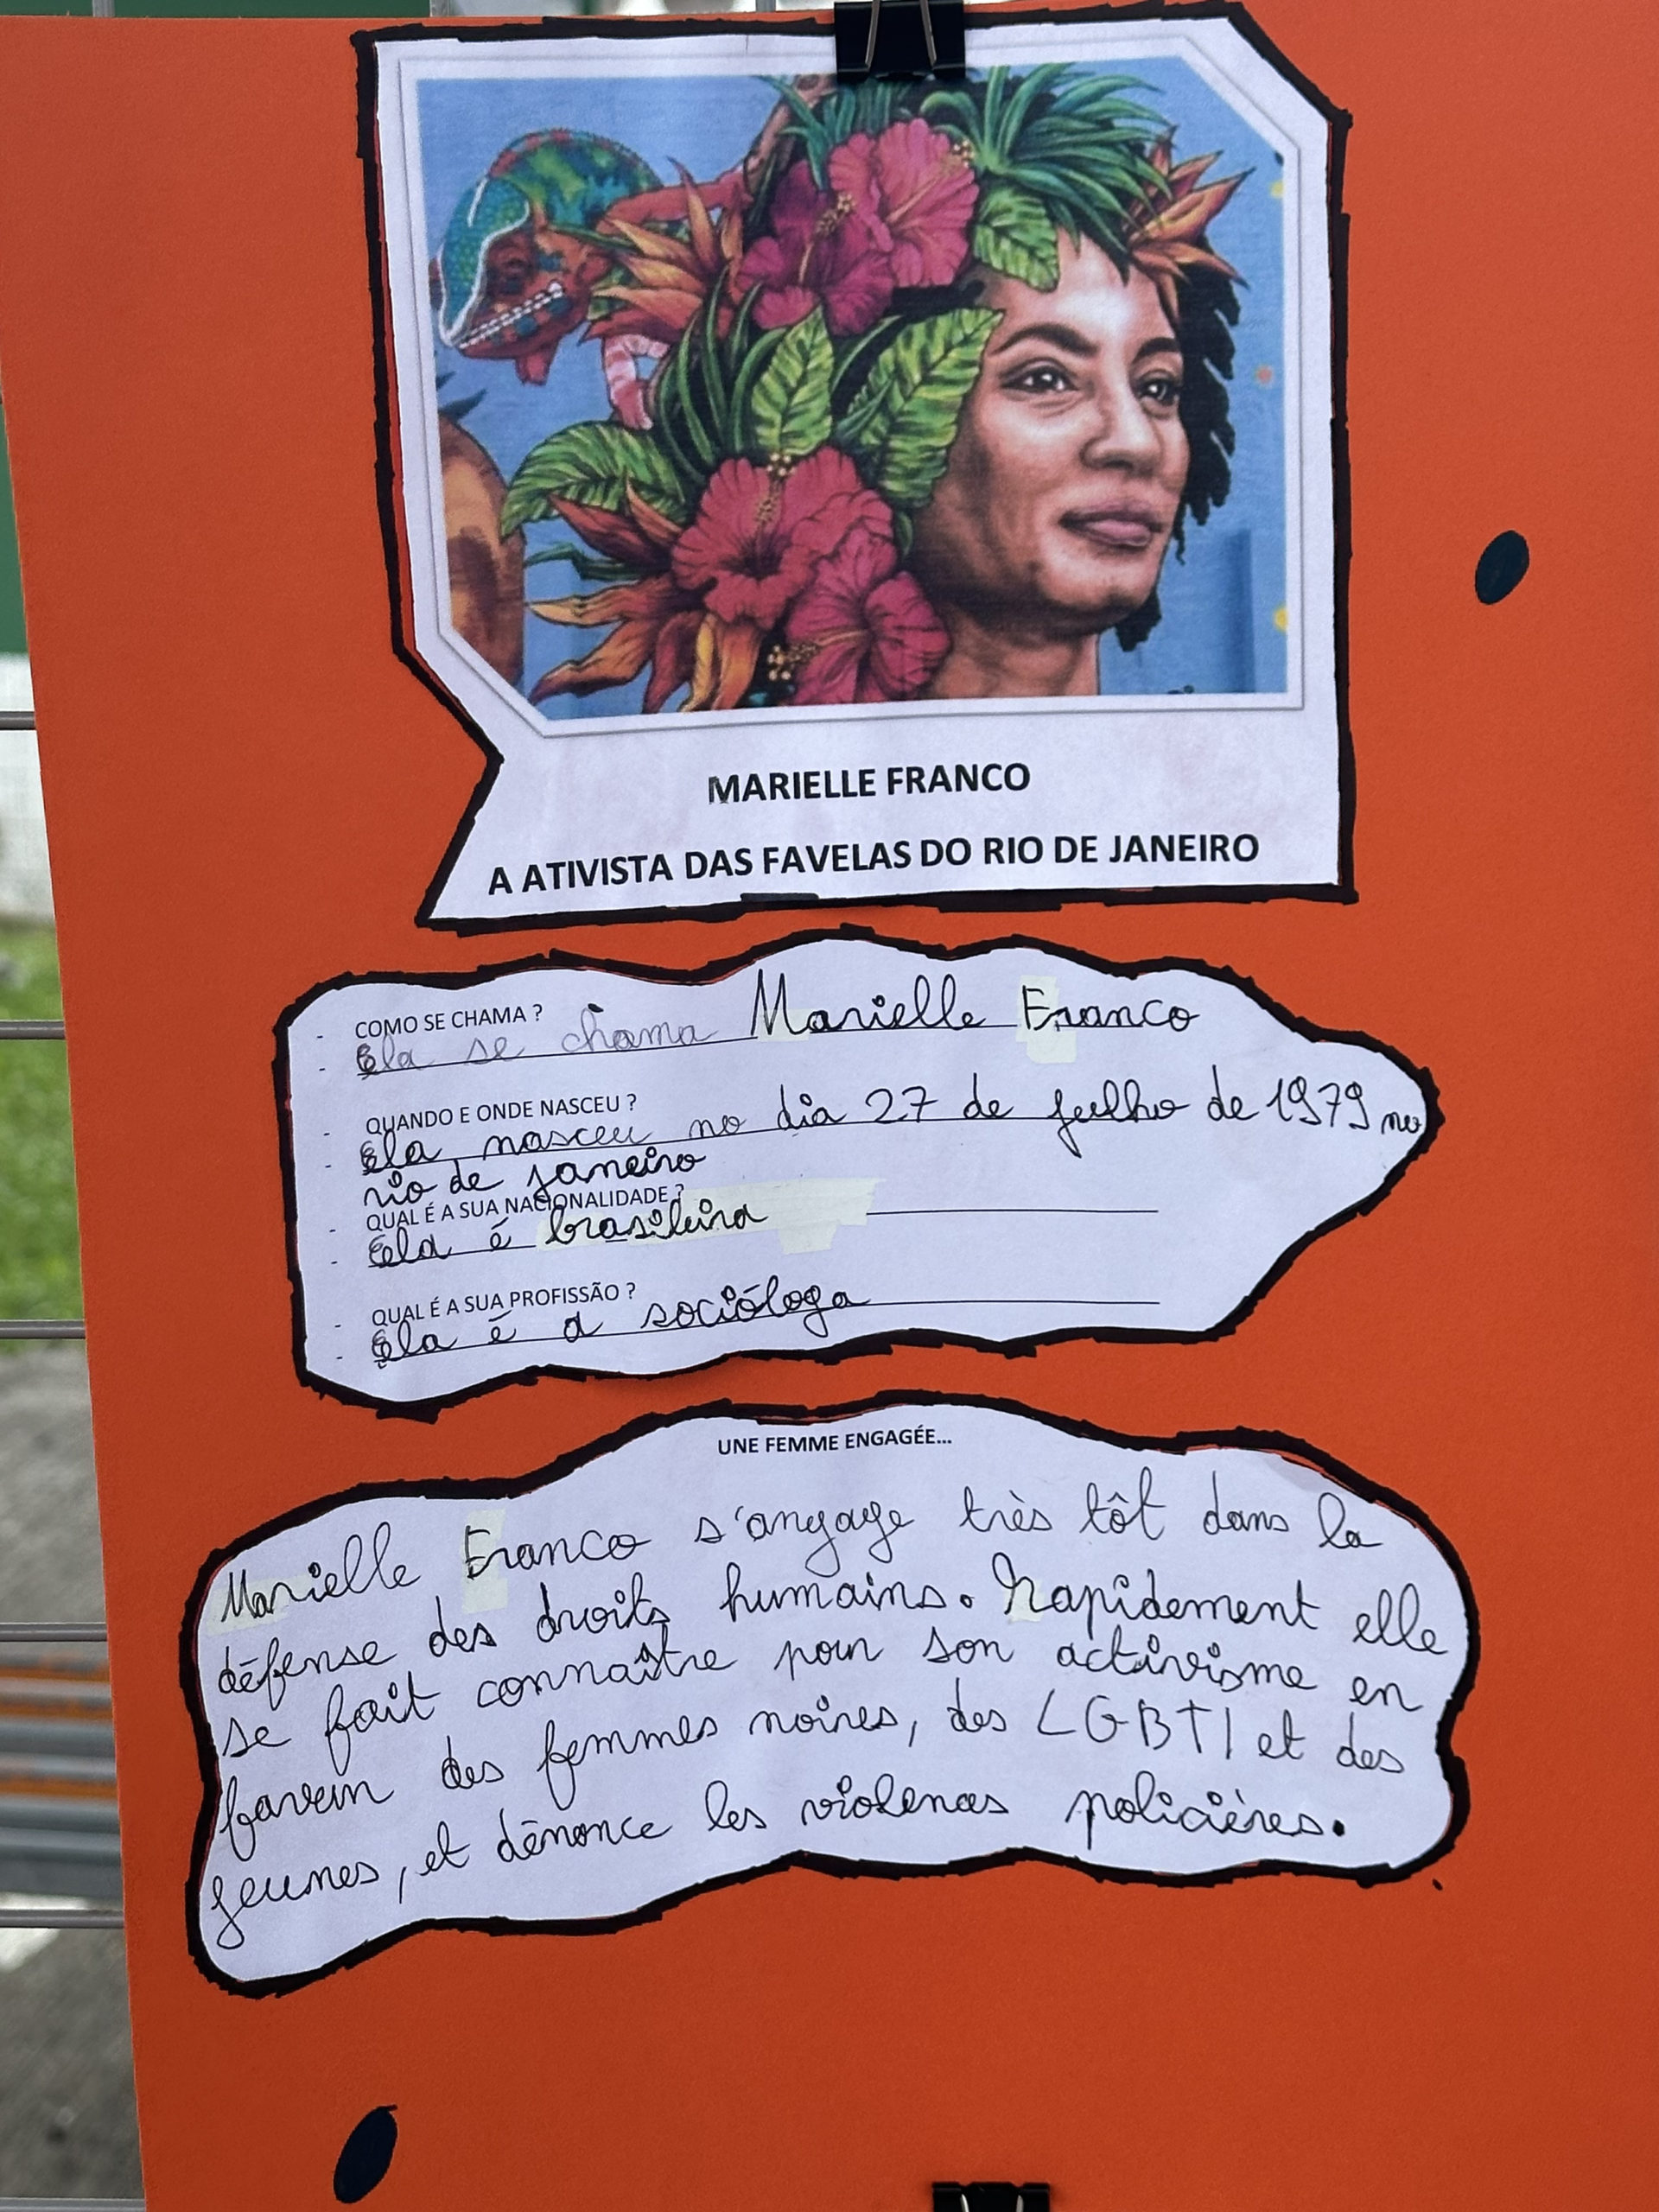 MARIELLE FRANCO
A ATIVISTA DAS FAVELAS DO RIO DE JANEIRO
- COMO SE CHAMA ?
- Ela se chama Marielle Franco
- QUANDO E ONDE NASCEU ?
- Ela nasceu no dia 27 de julho de 1979 no
rio de janeiro
- QUAL É A SUA NACIONALIDADE ?
- Ela é brasileira
- QUAL É A SUA PROFISSÃO ?
- Ela é a socióloga
UNE FEMME ENGAGÉE...
Marielle Franco s'angage très tôt dans la
défense des droits humains. Rapidement elle
se fait connaître pour son activisme en
faveur des femmes noires, des LGBTI et des
jeunes, et dénonce les violences policières.